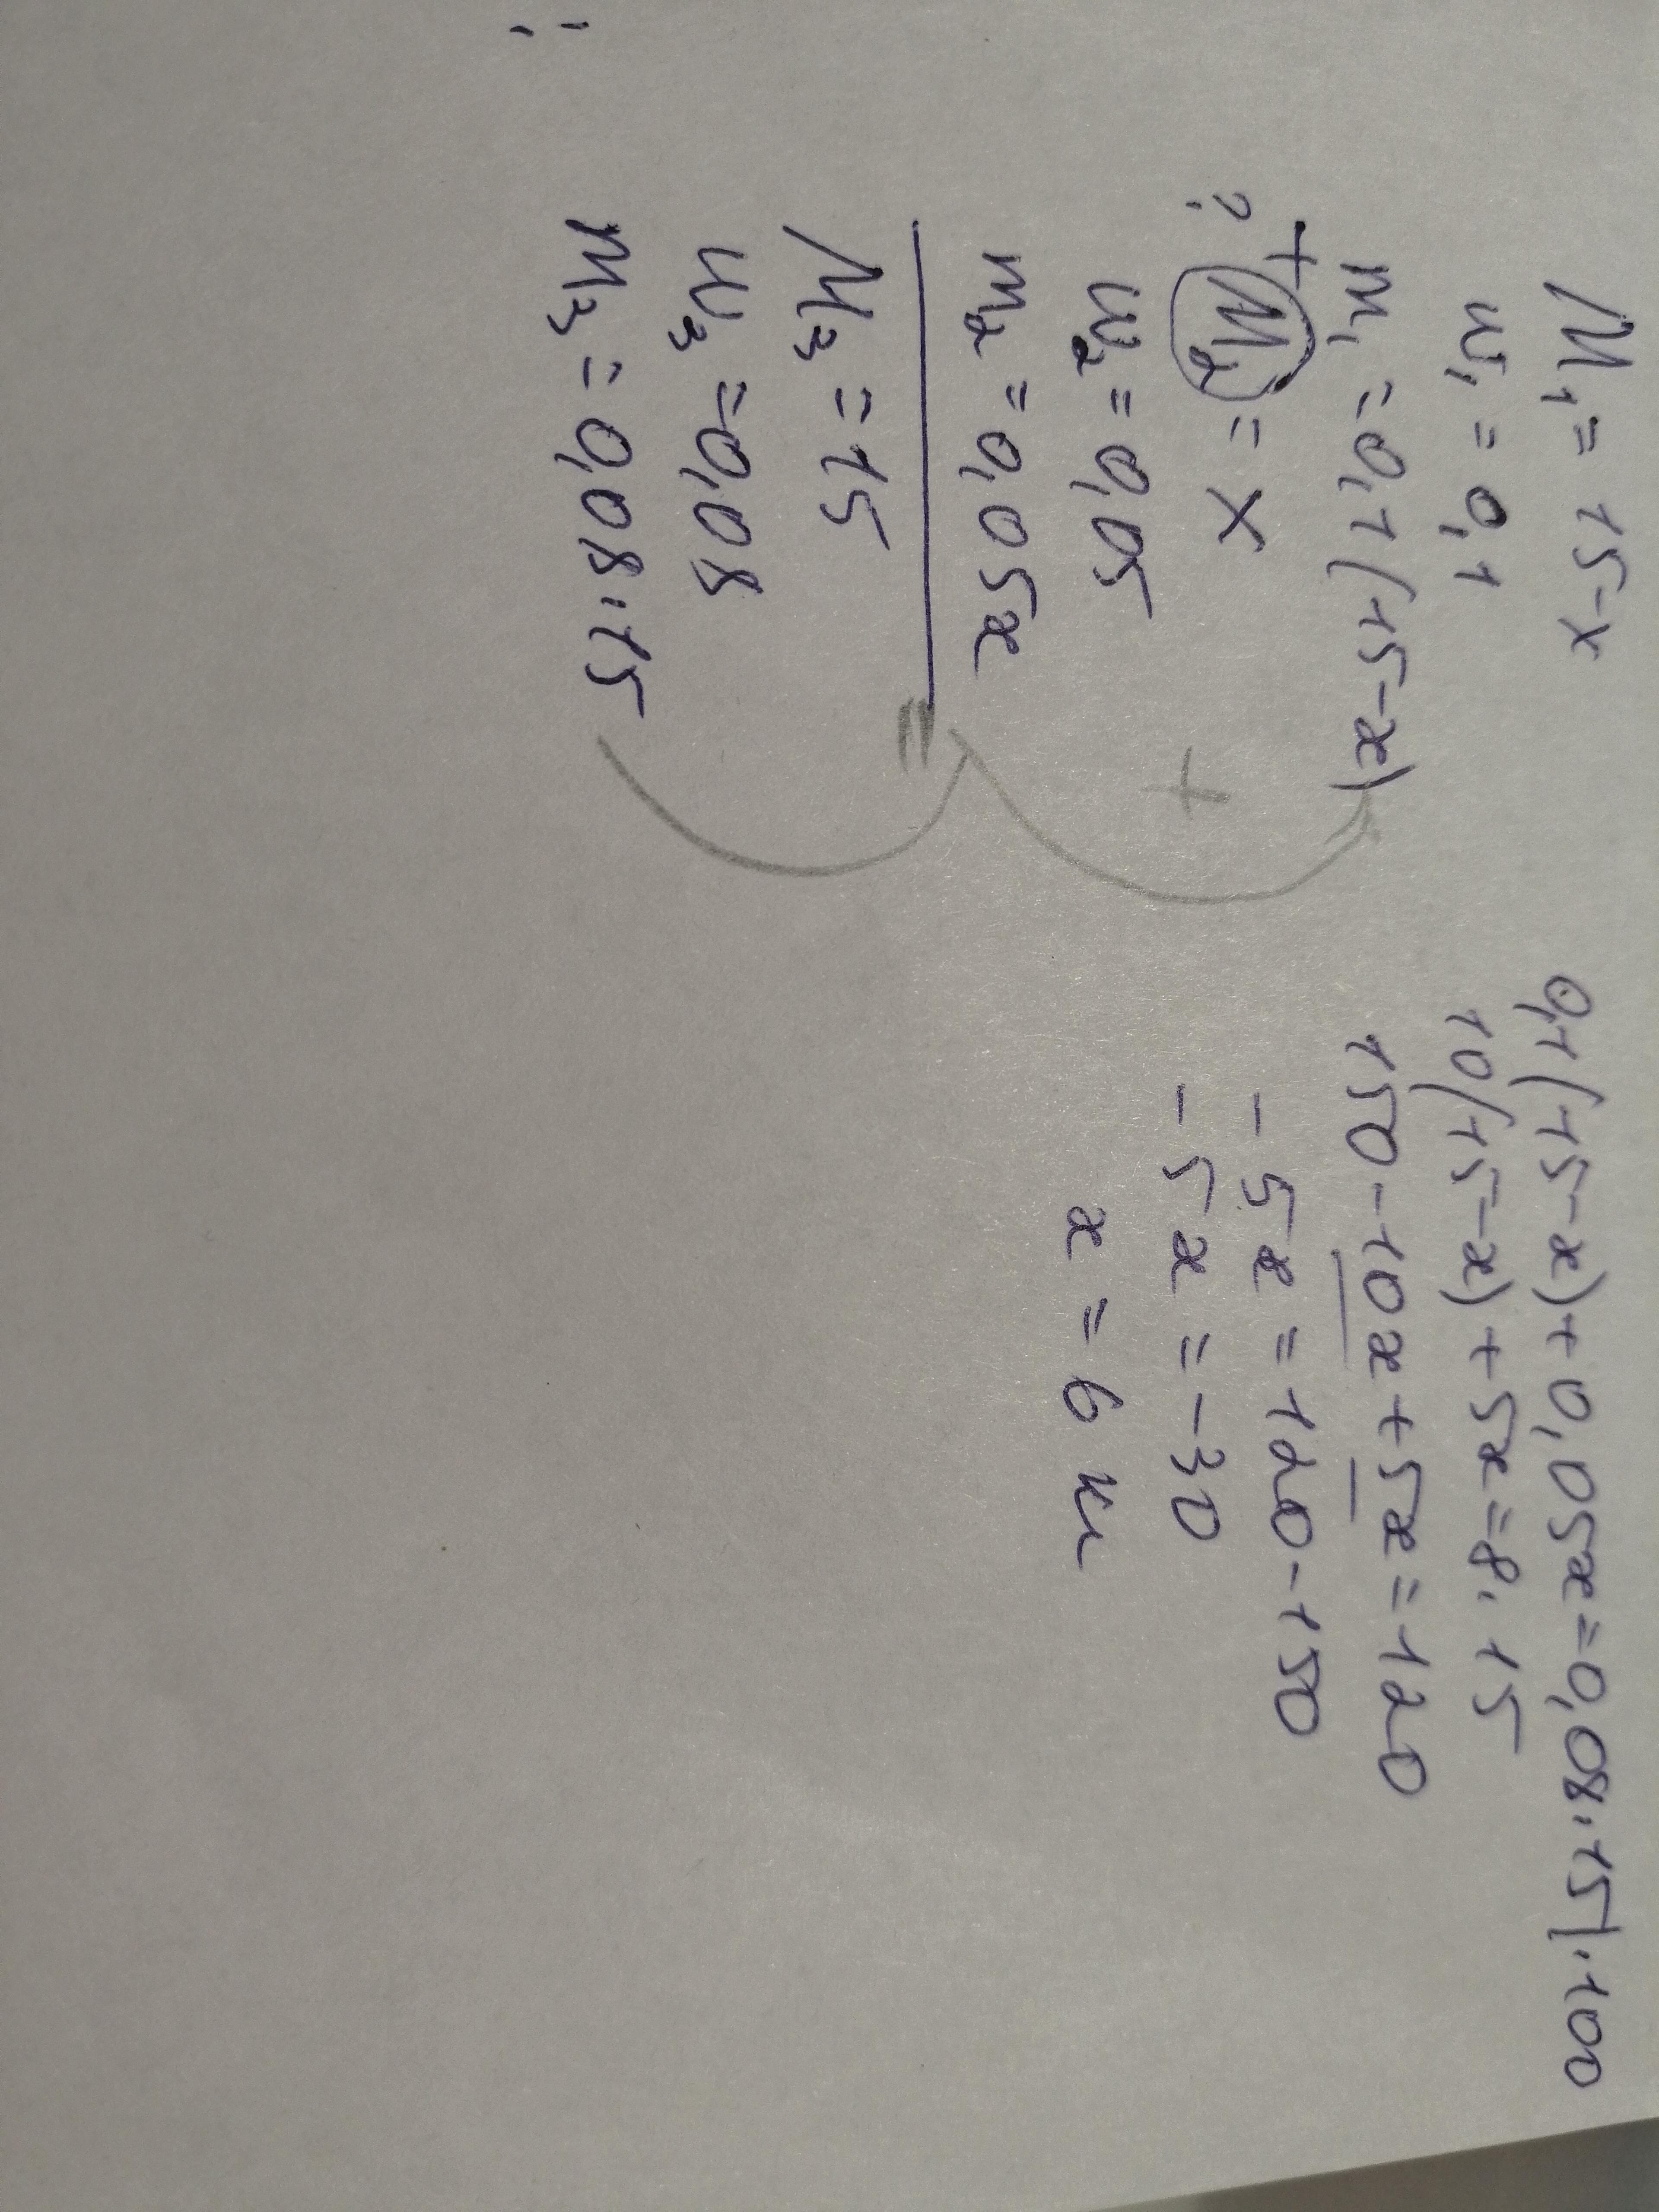 M₁ = 15-x
w₁ = 0,1
m₁ = 0,1(15-x)
+
? M₂ = x
w₂ = 0,05
m₂ = 0,05x
+
=
M₃ = 15
w₃ = 0,08
m₃ = 0,08·15
0,1(15-x)+0,05x=0,08·15|·100
10(15-x)+5x=8·15
150-10x+5x=120
-5x=120-150
-5x=-30
x=6 кг